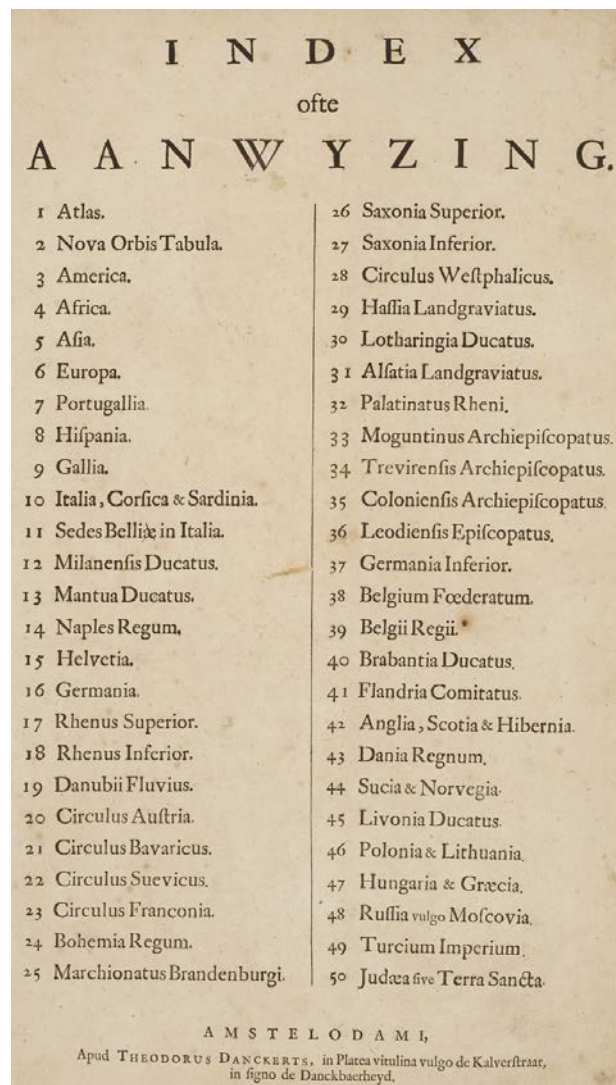 INDEX
ofte
AANWYZING.
1 Atlas.
2 Nova Orbis Tabula.
3 America.
4 Africa.
5 Aſia.
6 Europa.
7 Portugallia.
8 Hiſpania.
9 Gallia.
10 Italia, Corſica & Sardinia.
11 Sedes Belliæ in Italia.
12 Milanenſis Ducatus.
13 Mantua Ducatus.
14 Naples Regum.
15 Helvetia.
16 Germania.
17 Rhenus Superior.
18 Rhenus Inferior.
19 Danubii Fluvius.
20 Circulus Auſtria.
21 Circulus Bavaricus.
22 Circulus Suevicus.
23 Circulus Franconia.
24 Bohemia Regum.
25 Marchionatus Brandenburgi.
26 Saxonia Superior.
27 Saxonia Inferior.
28 Circulus Weſtphalicus.
29 Haſſia Landgraviatus.
30 Lotharingia Ducatus.
31 Alſatia Landgraviatus.
32 Palatinatus Rheni.
33 Moguntinus Archiepiſcopatus.
34 Trevirenſis Archiepiſcopatus.
35 Colonienſis Archiepiſcopatus.
36 Leodienſis Epiſcopatus.
37 Germania Inferior.
38 Belgium Fœderatum.
39 Belgii Regii.
40 Brabantia Ducatus.
41 Flandria Comitatus.
42 Anglia, Scotia & Hibernia.
43 Dania Regnum.
44 Sucia & Norvegia.
45 Livonia Ducatus.
46 Polonia & Lithuania.
47 Hungaria & Græcia.
48 Ruſſia vulgo Moſcovia.
49 Turcium Imperium.
50 Judæa ſive Terra Sancta.
AMSTELODAMI,
Apud THEODORUS DANCKERTS, in Platea vitulina vulgo de Kalverſtraat,
in ſigno de Danckbaerheyd.